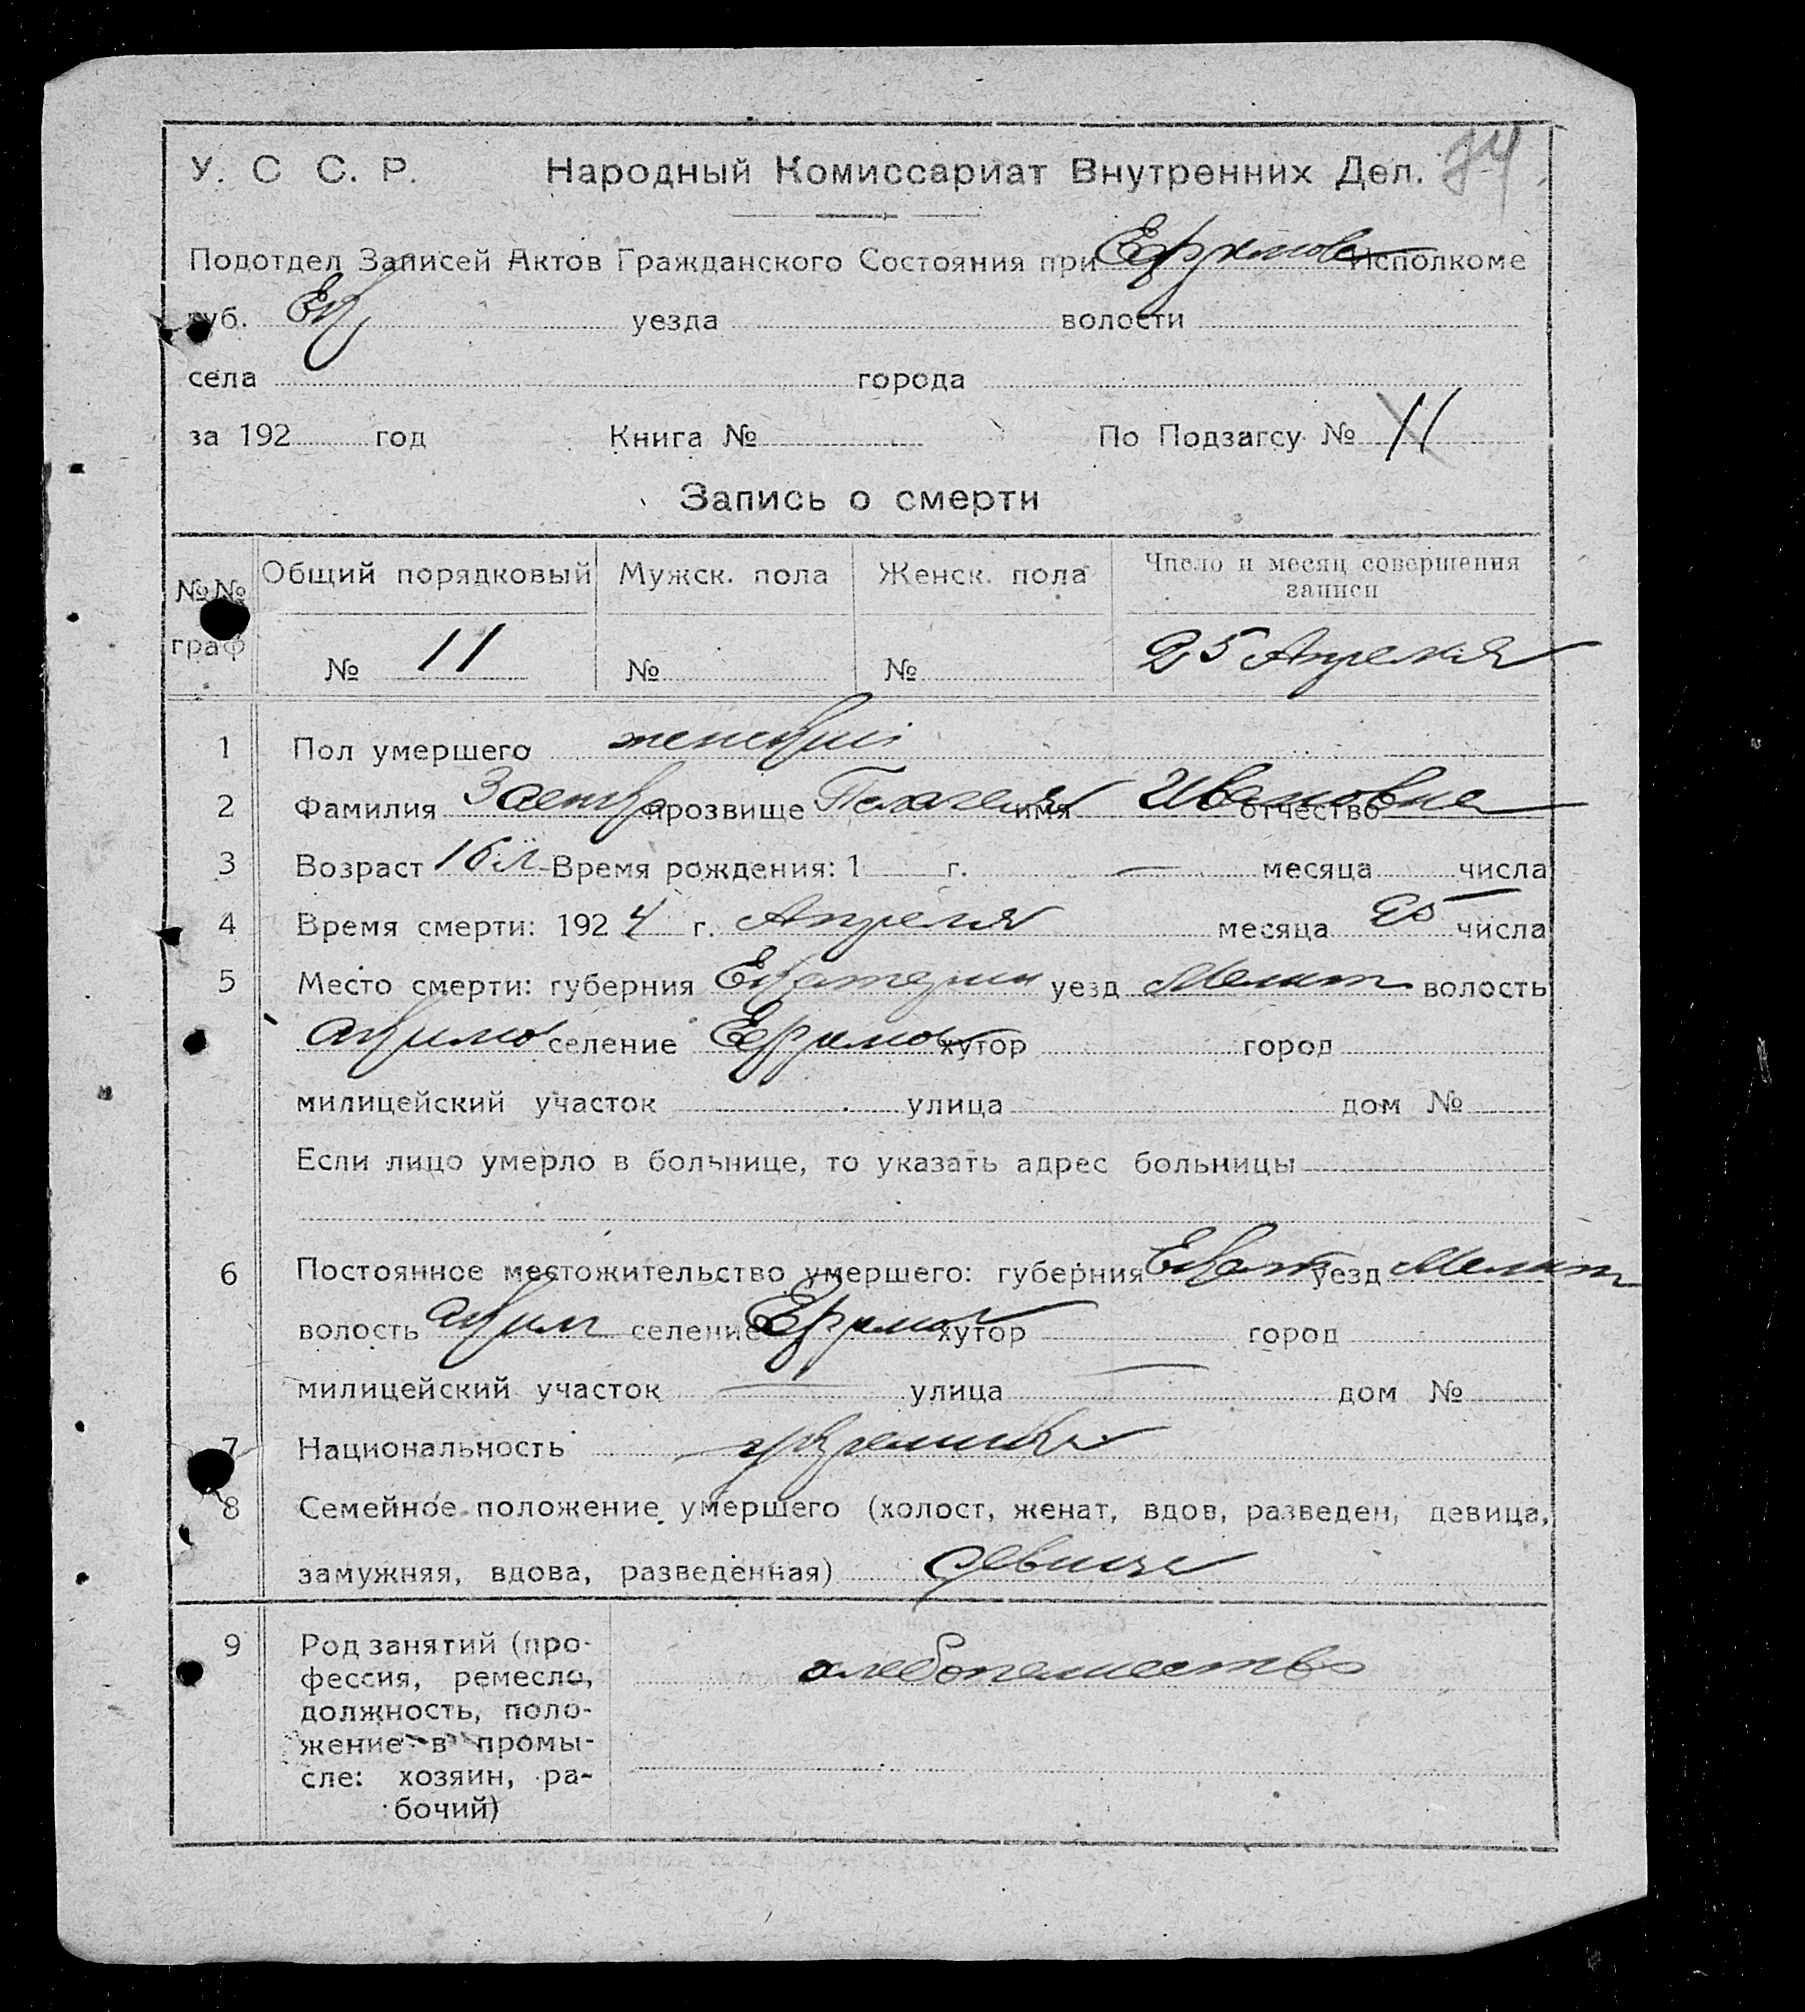 У. С С. Р. Народный Комиссариат Внутренних Дел. 84
Подотдел Записей Актов Гражданского Состояния при Ефремов Исполкоме
губ. Ек уезда волости
села города
за 192 год Книга № По Подзагсу № 11
Запись о смерти
№№ граф Общий порядковый Мужск. пола Женск. пола Число и месяц совершения записи
№ 11 № № 25 Апреля
1 Пол умершего женский
2 Фамилия прозвище Пелагея имя Ивановна отчество
3 Возраст 16 л Время рождения: 1 г. — месяца числа
4 Время смерти: 1924 г. Апреля месяца 25 числа
5 Место смерти: губерния Екатерин уезд Мелит волость
Акимо селение Ефремов хутор город
милицейский участок улица дом №
Если лицо умерло в больнице, то указать адрес больницы
6 Постоянное местожительство умершего: губерния Екат уезд Мелит
волость Аким селение Ефремов хутор город
милицейский участок — улица — дом №
7 Национальность
8 Семейное положение умершего (холост, женат, вдов, разведен, девица,
замужняя, вдова, разведенная) девица
9 Род занятий (про-
фессия, ремесло, хлебопашество
должность, поло-
жение в промы-
сле: хозяин, ра-
бочий)